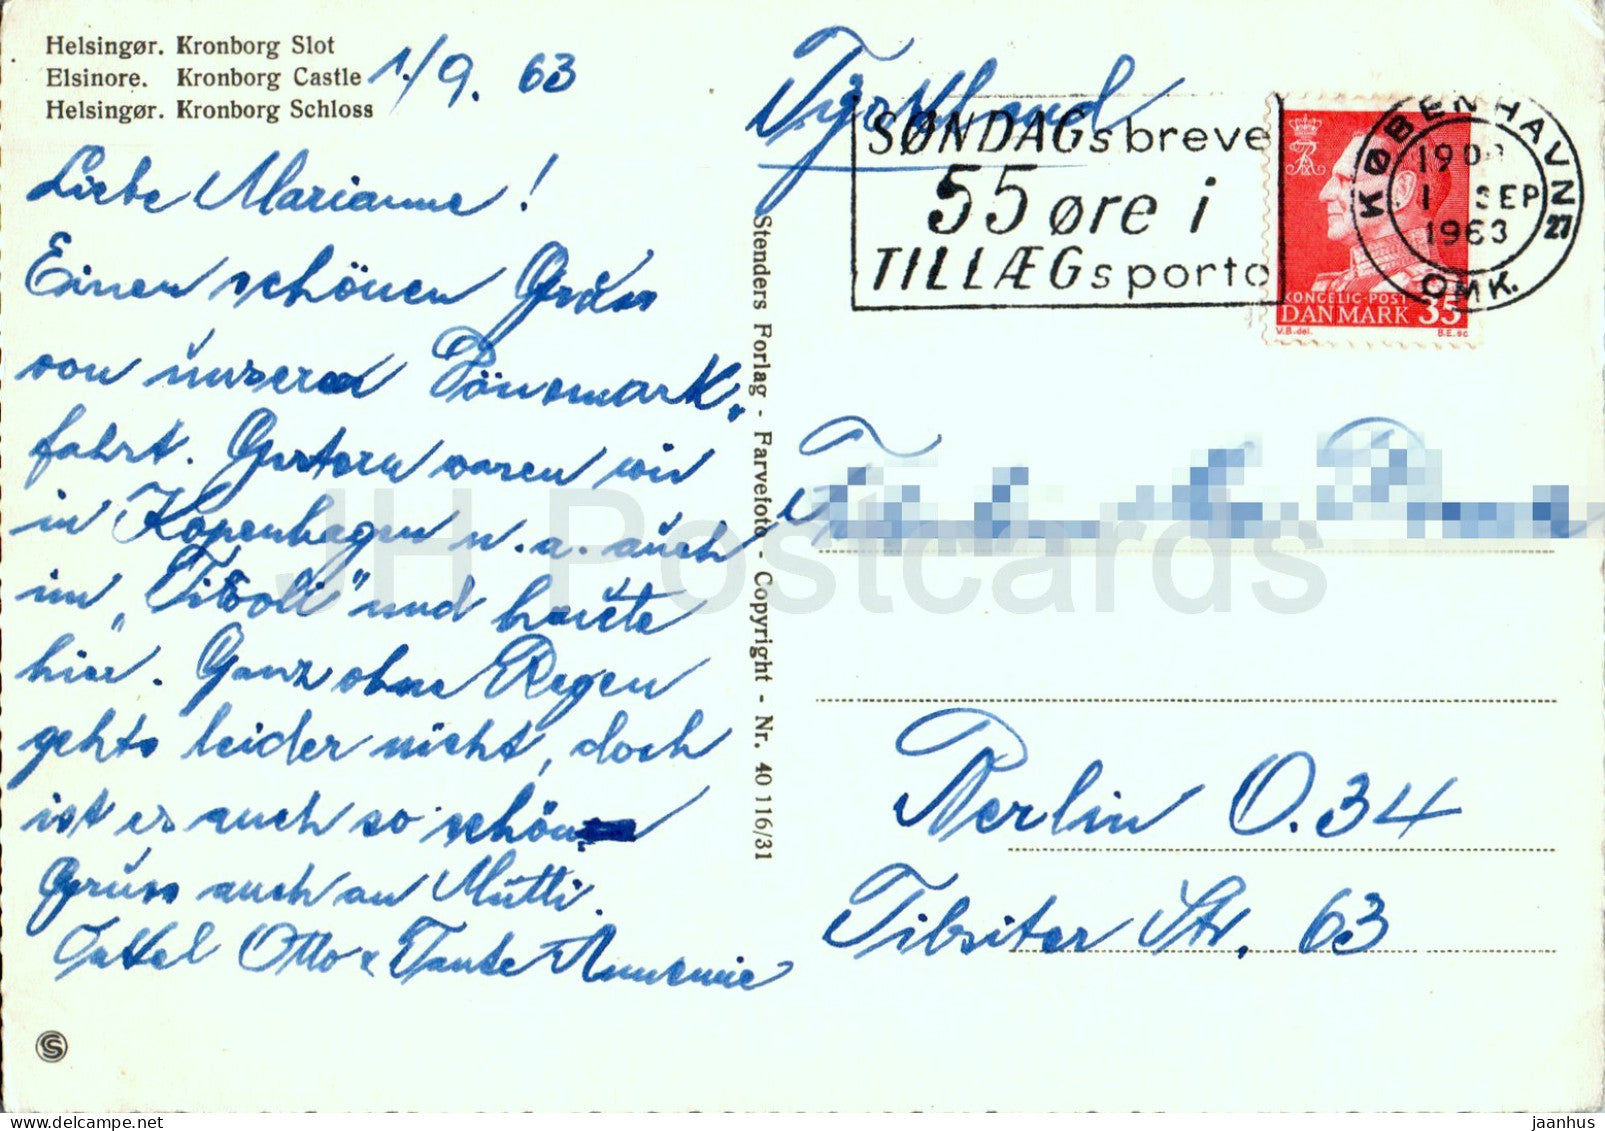 Helsingør. Kronborg Slot
Elsinore. Kronborg Castle
Helsingør. Kronborg Schloss
1./9. 63
Liebe Marianne!
Einen schönen Gruss
von unserer Dänemark-
fahrt. Gestern waren wir
in Kopenhagen u. a. auch
im „Tivoli" und heute
hier. Ganz ohne Regen
gehts leider nicht, doch
ist es auch so schön
Gruss auch an Mutti.
Otto & Tante Annemie
Stenders Forlag - Farvefoto - Copyright - Nr. 40 116/31
Tyskland
SØNDAGsbreve
55 øre i
TILLÆGsporto
KØBENHAVN
1 SEP
1963
27
OMK.
KONGELIG-POST
DANMARK 35
V.B. del. B.E. sc
Berlin O.34
Tilsiter Str. 63
JH Postcards
S
jaanhus